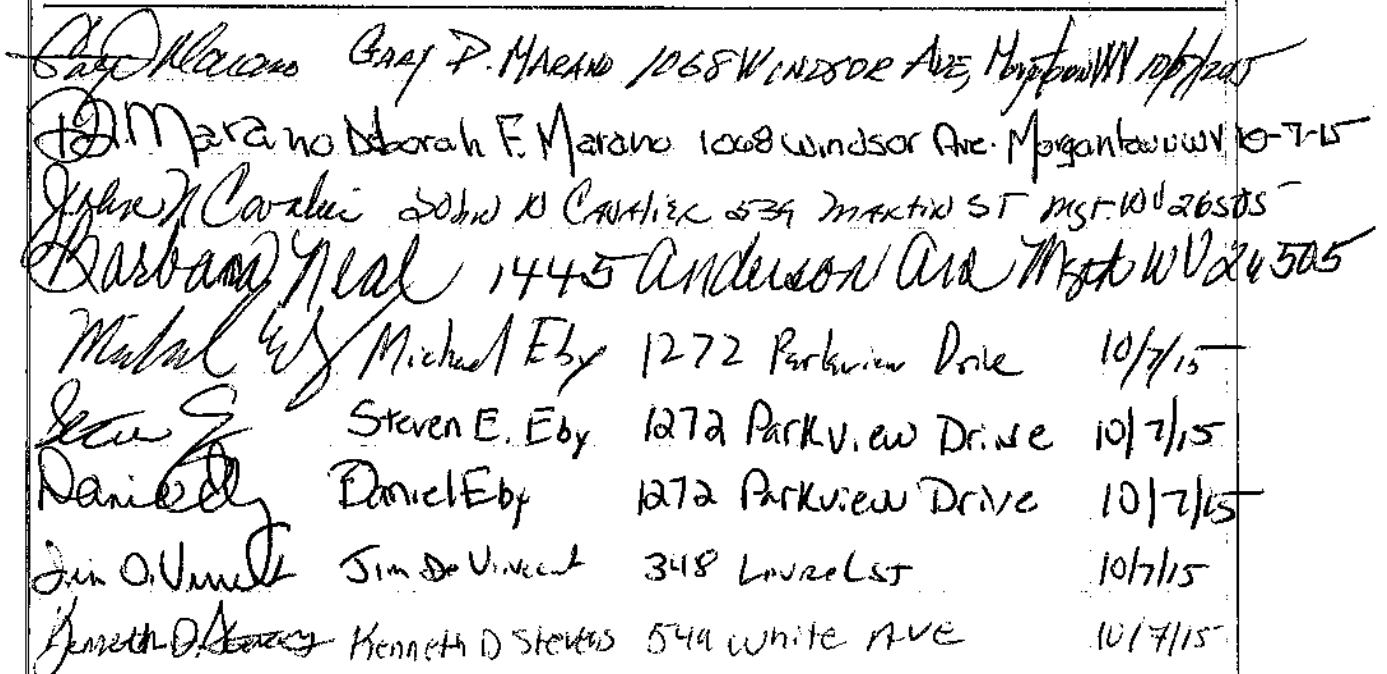 Gary D. Marano GARY D. MARANO 1068 WINDSOR AVE, Morgantown WV 10/7/2015
D.F. Marano Deborah F. Marano 1068 Windsor Ave. Morgantown WV 10-7-15
John N Cavalier John N Cavalier 539 Martin ST Mgt. WV 26505
Barbara Neal 1445 Anderson Ave Mgtn WV 26505
Michael Eby Michael Eby 1272 Parkview Drive 10/7/15
Steven E. Eby 1272 Parkview Drive 10/7/15
Daniel Eby Daniel Eby 1272 Parkview Drive 10/7/15
Jim DeVincent 348 Laurel ST 10/7/15
Kenneth D. Kenneth D Stevens 549 White AVE 10/7/15